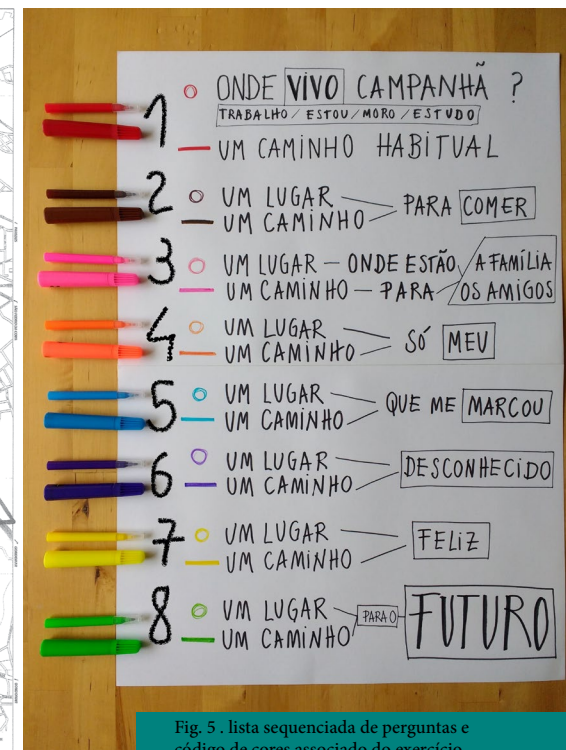 1
ONDE VIVO CAMPANHÃ ?
TRABALHO / ESTOU / MORO / ESTUDO
UM CAMINHO HABITUAL
2
UM LUGAR
UM CAMINHO
PARA COMER
3
UM LUGAR — ONDE ESTÃO
UM CAMINHO — PARA
A FAMÍLIA
OS AMIGOS
4
UM LUGAR
UM CAMINHO
SÓ MEU
5
UM LUGAR
UM CAMINHO
QUE ME MARCOU
6
UM LUGAR
UM CAMINHO
DESCONHECIDO
7
UM LUGAR
UM CAMINHO
FELIZ
8
UM LUGAR
UM CAMINHO
PARA O FUTURO
Fig. 5 . lista sequenciada de perguntas e
código de cores associado do exercício